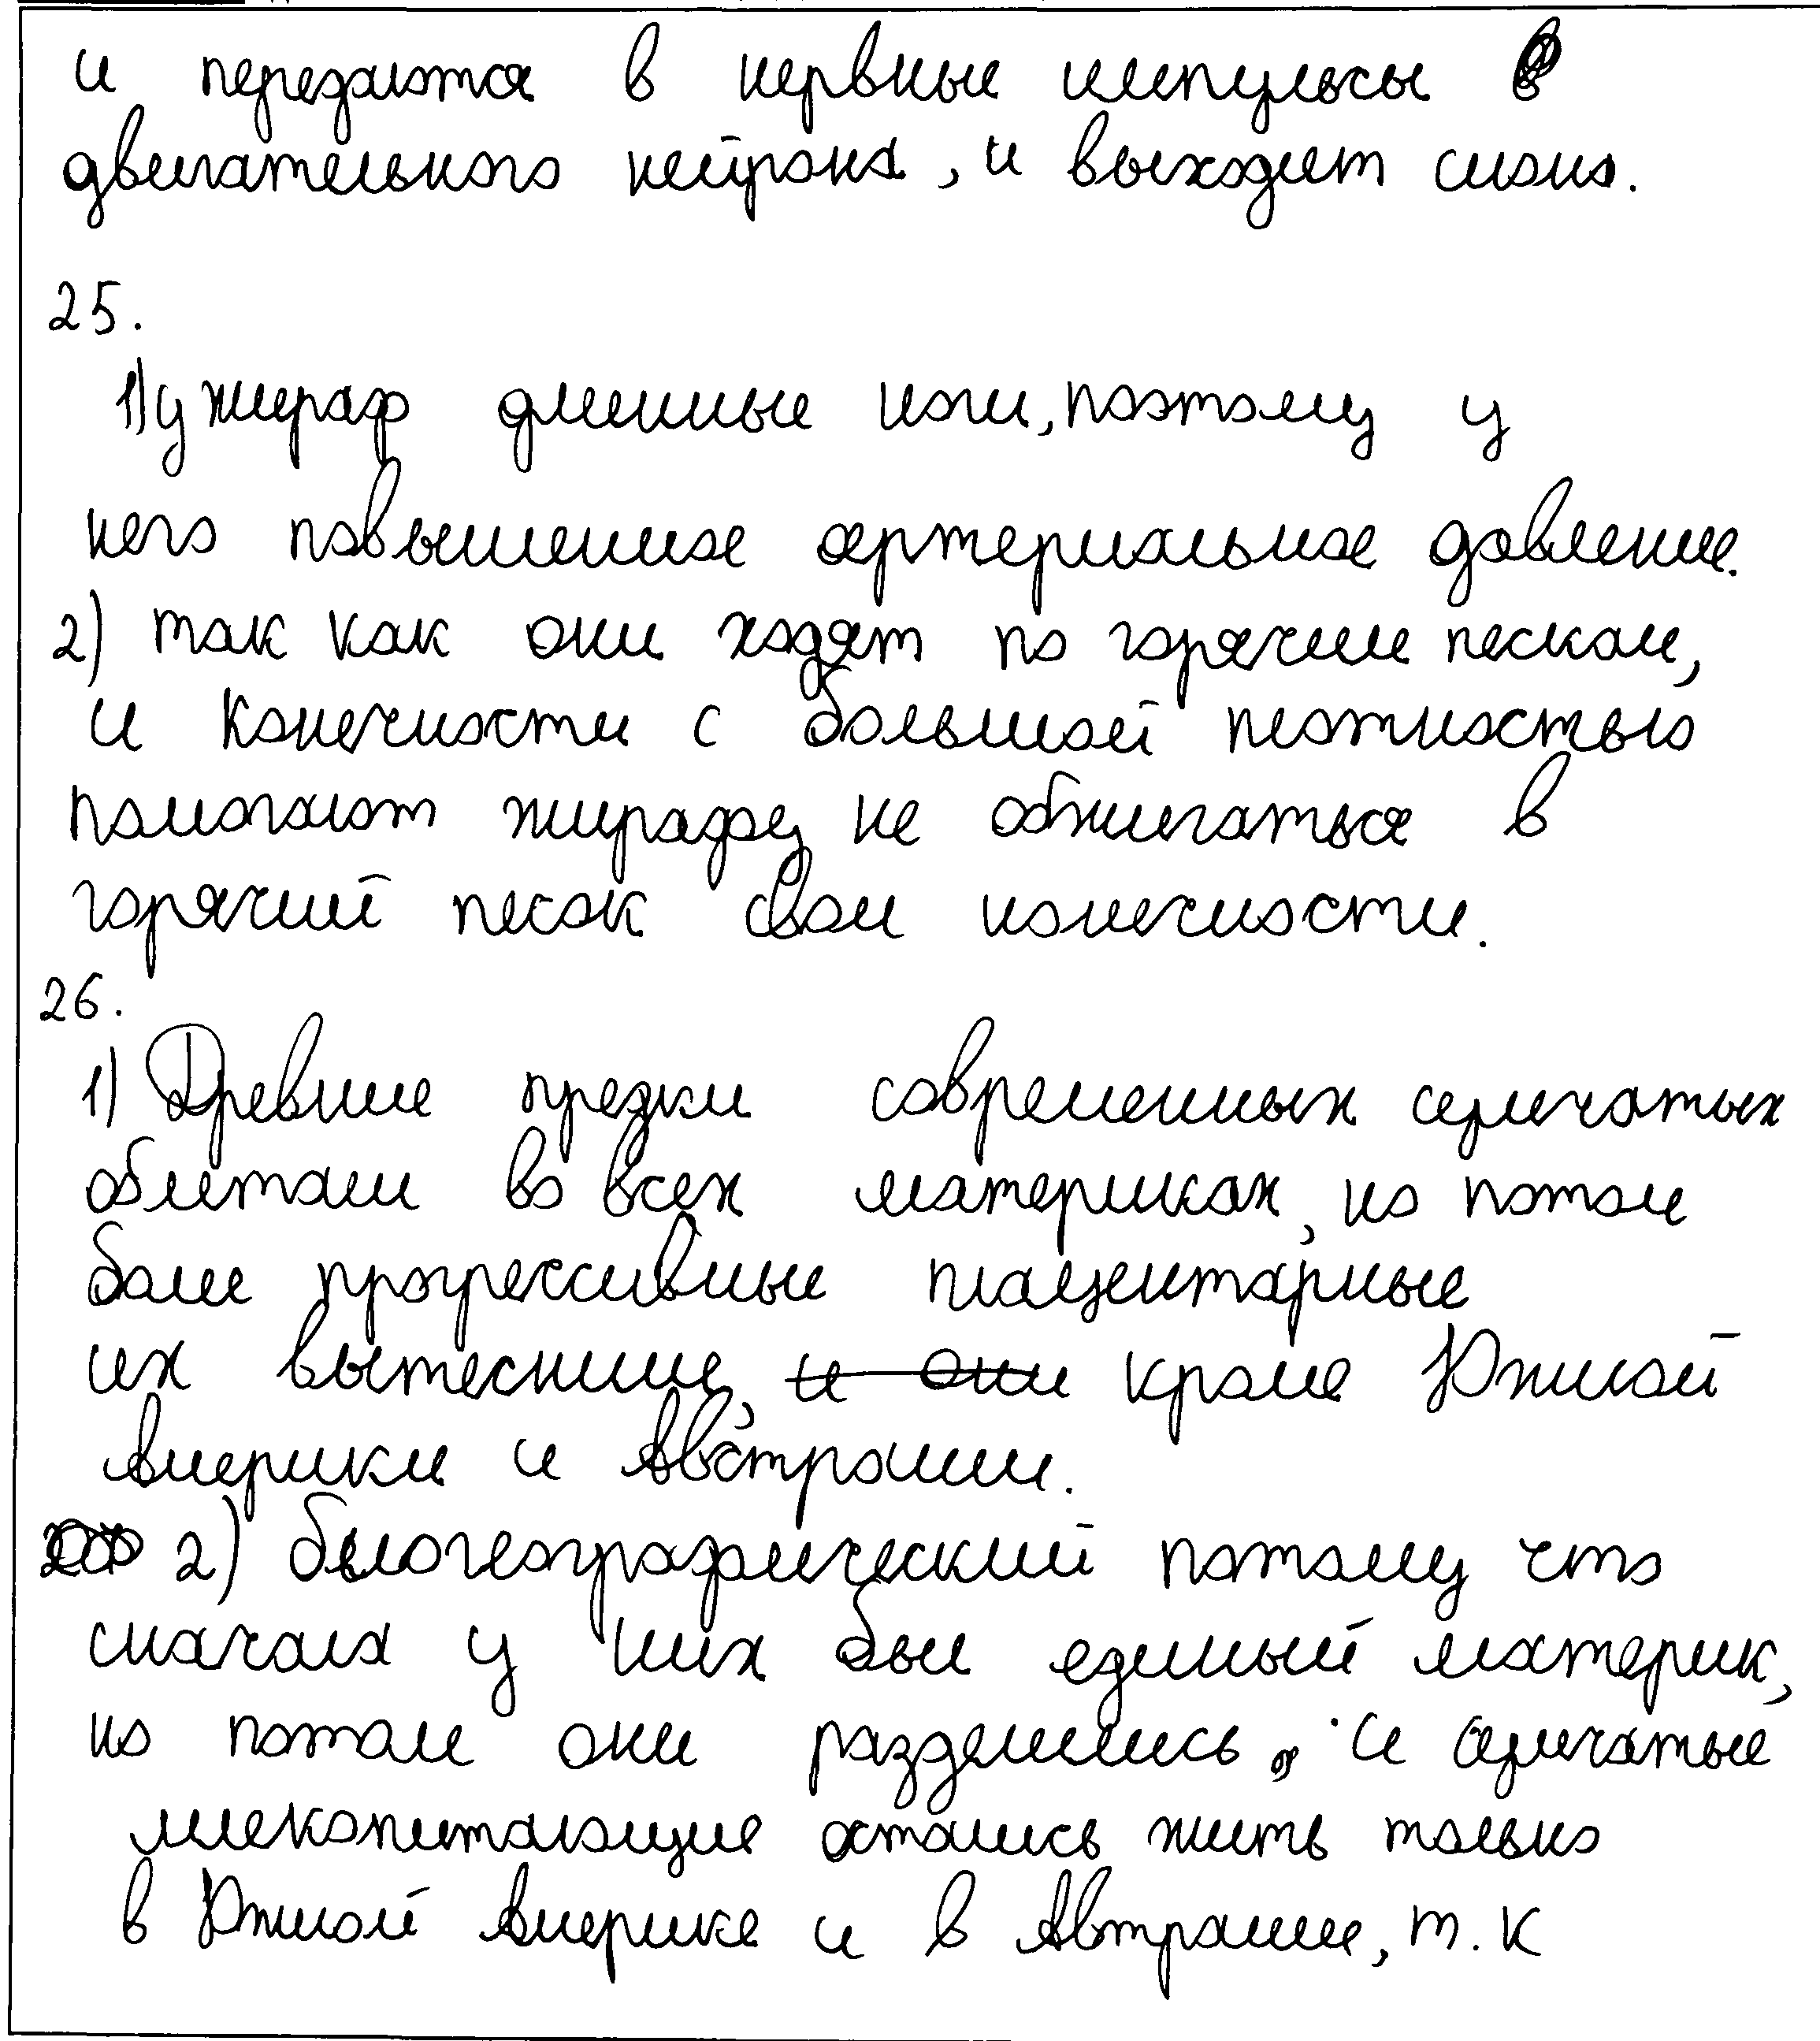 и передаются в нервные импульсы в
двигательного нейрона, и выходит
25.
1) у жираф длинные ноги, поэтому у
него повышенное артериальное давление.
2) так как они ходят по горячим пескам,
и конечности с большой плотностью
помогают жирафу не обжигаться в
горячий песок свои конечности.
26.
1) Древние предки современных сумчатых
обитали во всех материках, но потом
более прогрессивные плацентарные
их вытеснили, и они кроме Южной
Америки и Австралии.
2) биогеографический потому что
сначала у них был единый материк,
но потом они разделились, и сумчатые
млекопитающие остались жить только
в Южной Америке и в Автралии, т.к